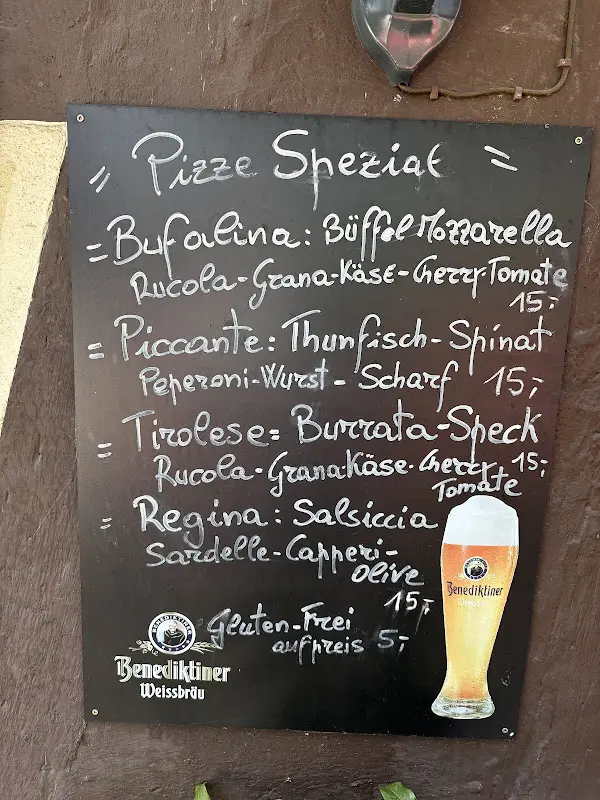 " Pizze Spezial =
= Bufalina: Büffel Mozzarella
Rucola-Grana-Käse-Cherry-Tomate
15,-
= Piccante: Thunfisch-Spinat
Peperoni-Wurst-Scharf 15,-
= Tirolese= Burrata-Speck
Rucola-Grana-Käse-Cherry 15,-
Tomate
= Regina: Salsiccia
Sardelle-Capperi-
Olive
15,-
Gluten-Frei
aufpreis 5,-
BENEDIKTINER
Benediktiner
Weissbräu
Benediktiner
Weissbräu